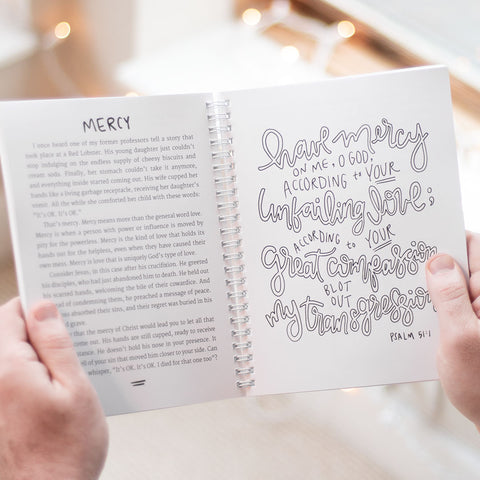 MERCY
I once heard one of my former professors tell a story that
took place at a Red Lobster. His young daughter just couldn't
stop indulging on the endless supply of cheesy biscuits and
cream sodas. Finally, her stomach couldn't take it anymore,
and everything inside started coming out. His wife cupped her
hands like a living garbage receptacle, receiving her daughter's
vomit. All the while she comforted her child with these words:
"It's OK. It's OK."
That's mercy. Mercy means more than the general word love.
Mercy is when a person with power or influence is moved by
pity for the powerless. Mercy is the kind of love that holds its
hands out for the helpless, even when they have caused their
own mess. Mercy is love that is uniquely God's type of love.
Consider Jesus, in this case after his crucifixion. He greeted
his disciples, who had just abandoned him to death. He held out
his scarred hands, welcoming the bile of their cowardice. And
of condemning them, he preached a message of peace.
absorbed their sins, and their regret was buried in his
grave.
that the mercy of Christ would lead you to let all that
come out. His hands are still capped, ready to receive
He doesn't hold his nose in your presence. It
of your sin that moved him closer to your side. Can
whisper, "It's OK. It's OK. I died for that one too"?
have mercy
ON ME, O GOD,
ACCORDING to YOUR
Unfailing love;
ACCORDING to YOUR
Great compassion
BLOT
OUT
my transgression
PSALM 51:1